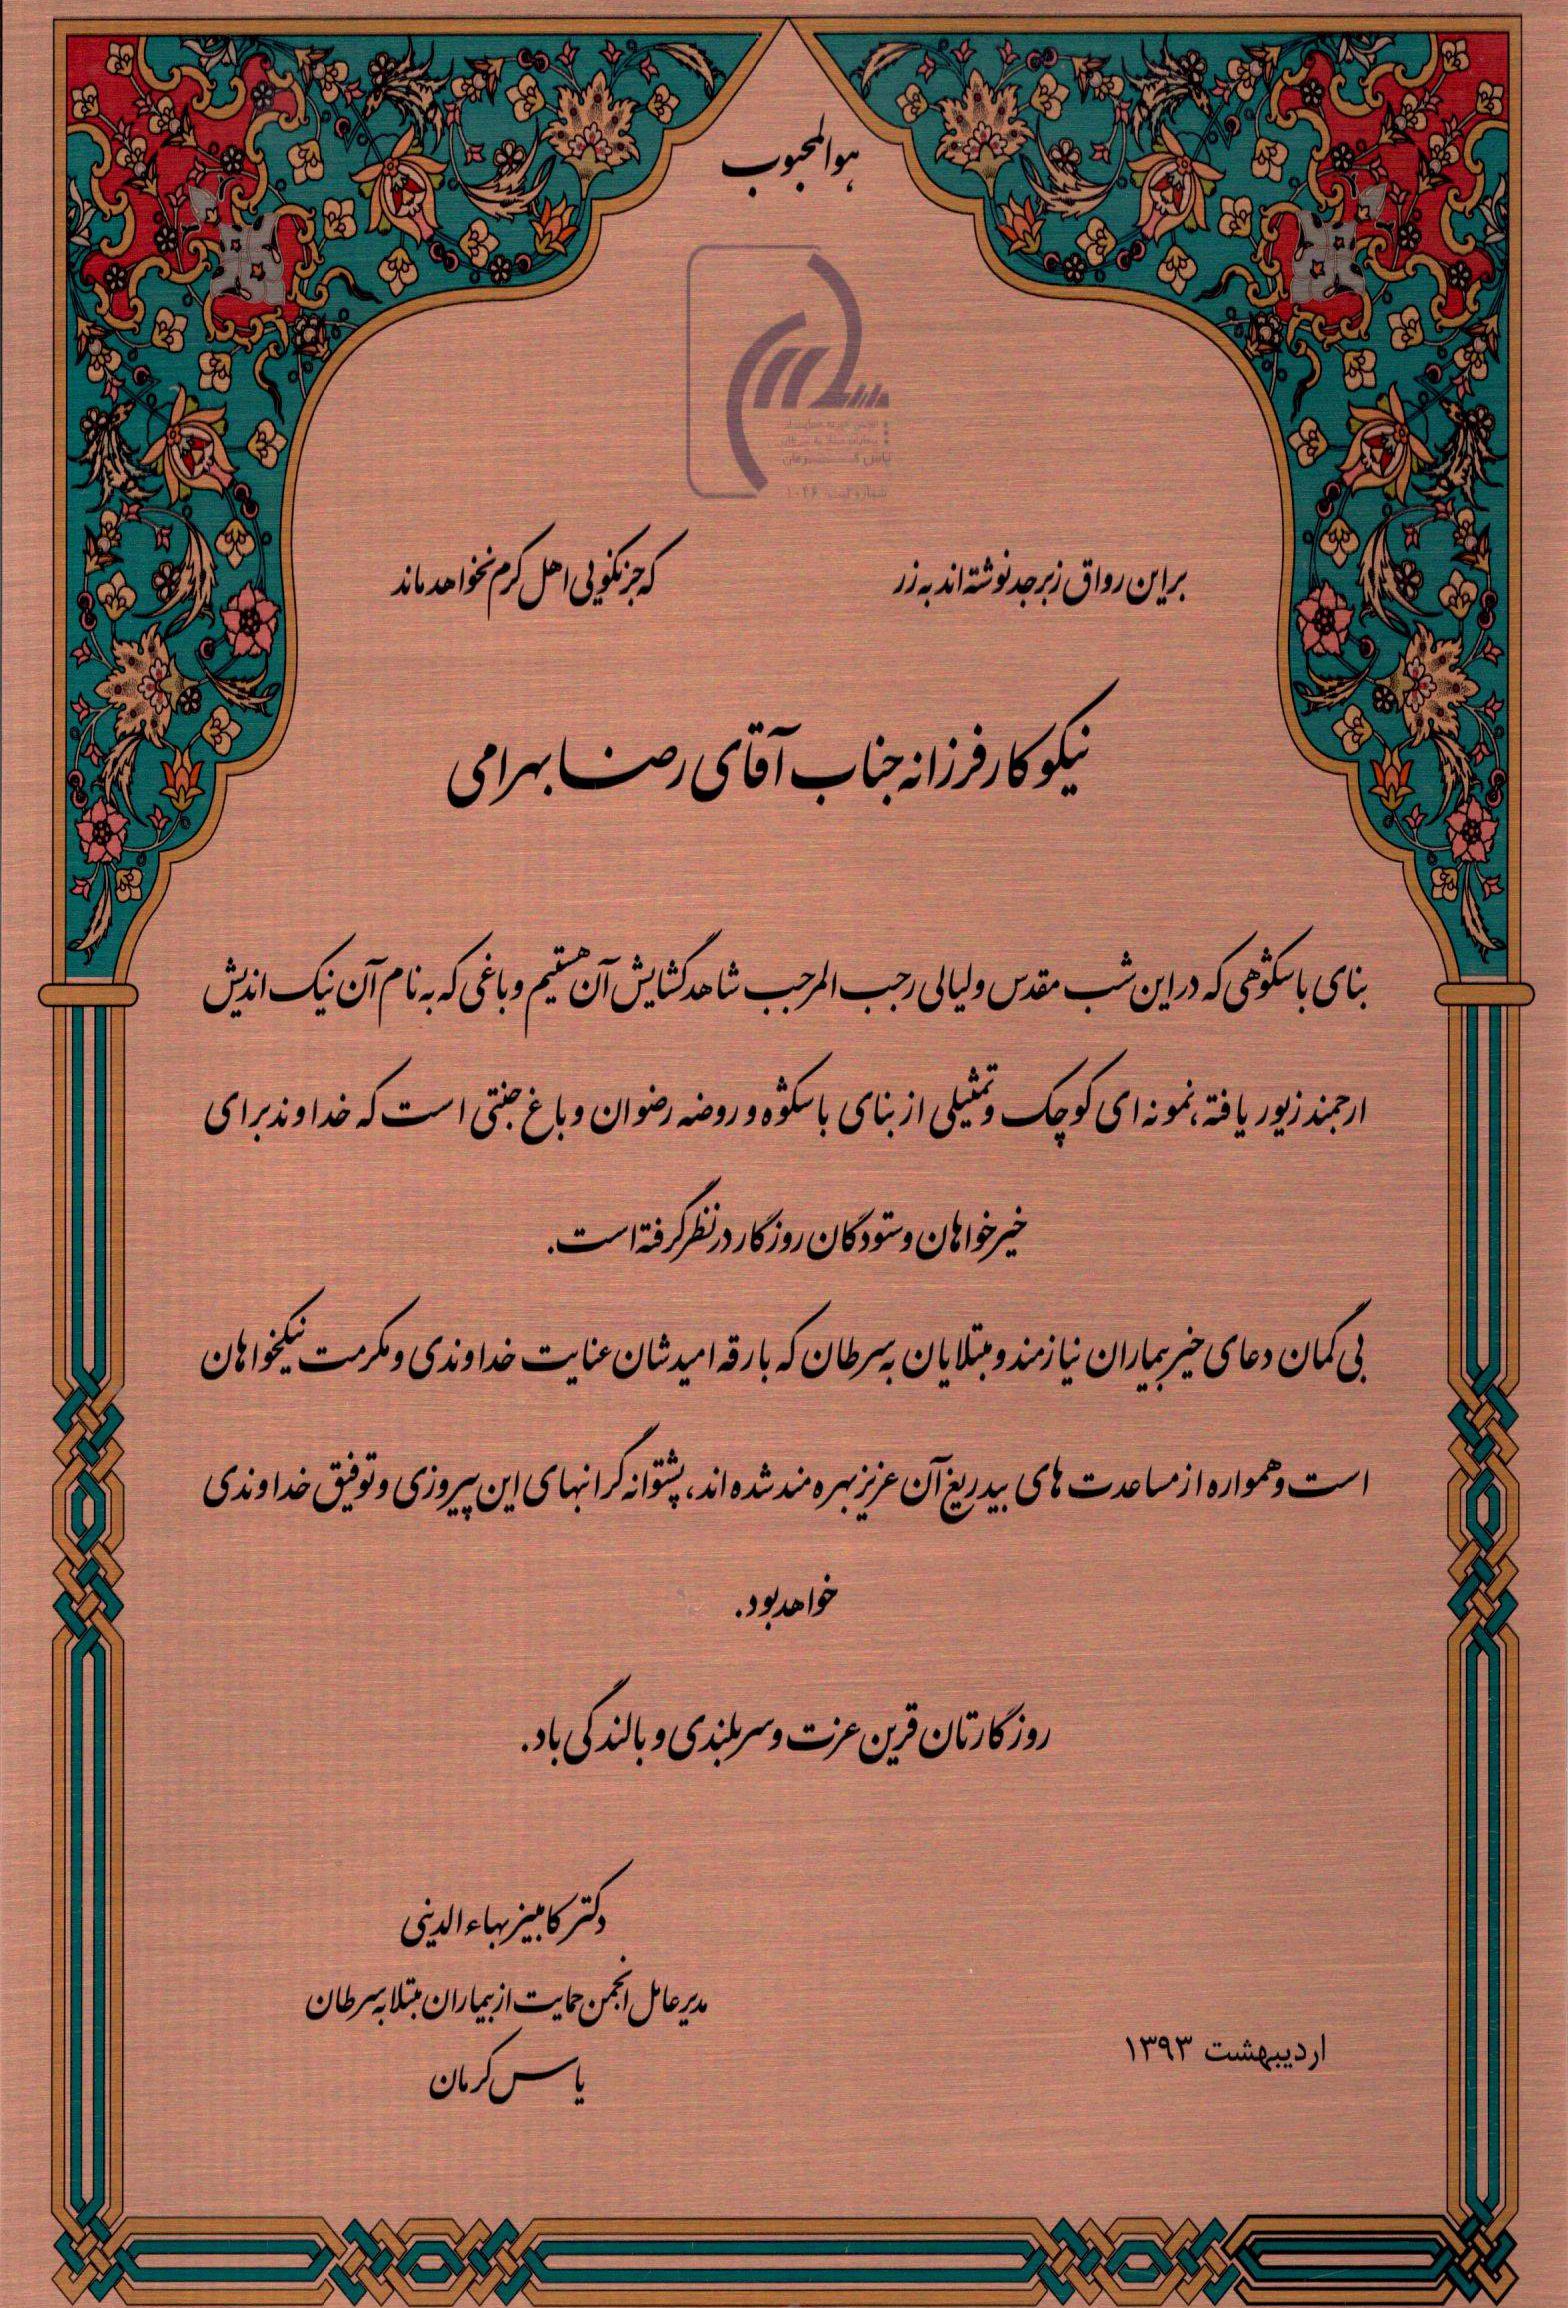 هوالمحبوب
بر این رواق زبرجد نوشته اند به زر که جز نکویی اهل کرم نخواهد ماند
نیکوکار فرزانه جناب آقای رضا بهرامی
بنای باشکوهی که در این شب مقدس و لیالی رجب المرجب شاهد گشایش آن هستیم و باغی که به نام آن نیک اندیش
ارجمند زیور یافته، نمونه ای کوچک و تمثیلی از بنای باشکوه و روضه رضوان و باغ جنتی است که خداوند برای
خیرخواهان و ستودگان روزگار در نظر گرفته است.
بی گمان دعای خیر بیماران نیازمند و مبتلایان به سرطان که بارقه امیدشان عنایت خداوندی و مکرمت نیکخواهان
است و همواره از مساعدت های بیدریغ آن عزیز بهره مند شده اند، پشتوانه گرانبهای این پیروزی و توفیق خداوندی
خواهد بود.
روزگارتان قرین عزت و سربلندی و بالندگی باد.
دکتر کامبیز بهاءالدینی
مدیر عامل انجمن حمایت از بیماران مبتلا به سرطان
یاس کرمان
اردیبهشت ۱۳۹۳